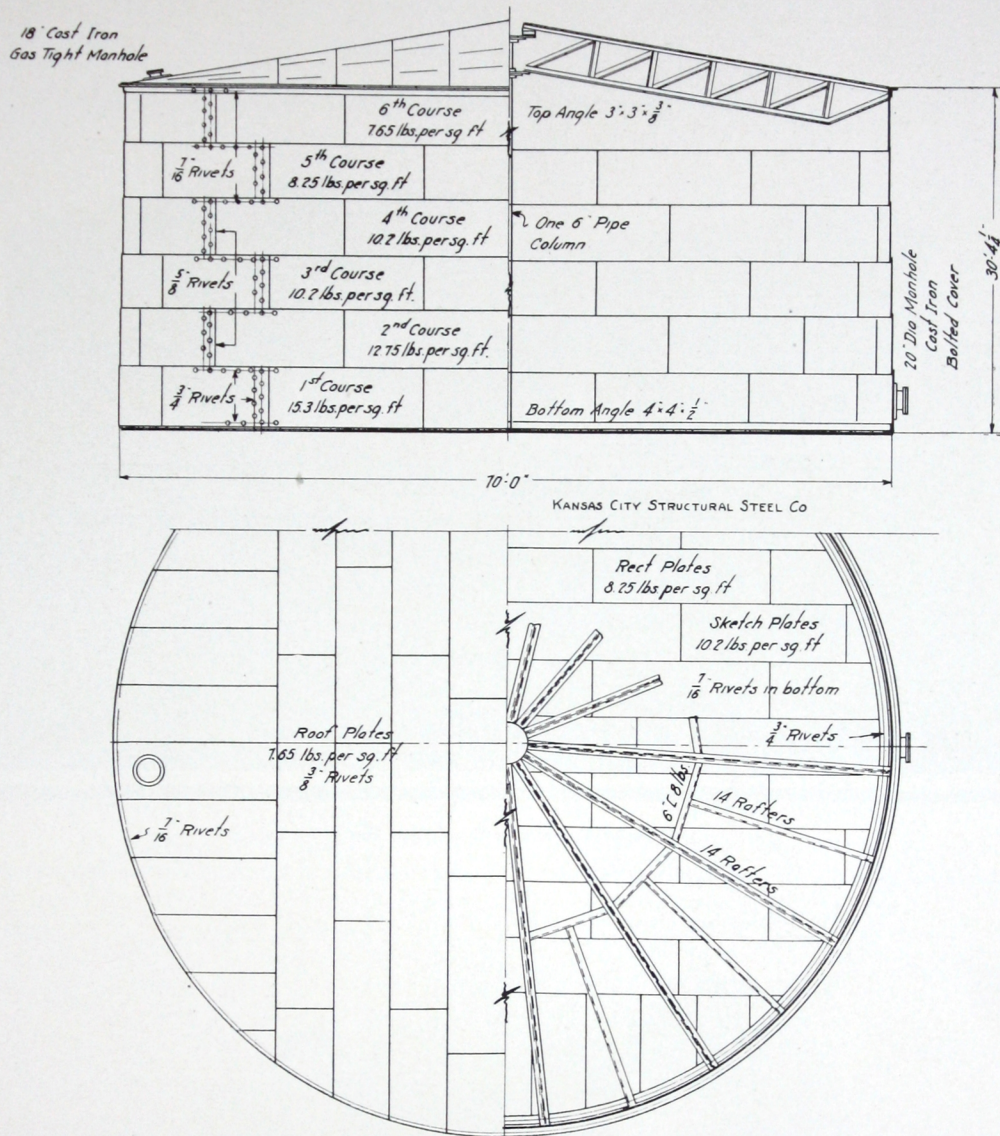 18" Cast Iron
Gas Tight Manhole
6th Course
7.65 lbs. per sq ft
Top Angle 3" × 3" × 3/8"
7/16" Rivets
5th Course
8.25 lbs. per sq. ft
4th Course
10.2 lbs. per sq. ft
One 6" Pipe
Column
5/8" Rivets
3rd Course
10.2 lbs. per sq. ft.
2nd Course
12.75 lbs. per sq. ft.
3/4" Rivets
1st Course
15.3 lbs. per sq. ft
Bottom Angle 4" × 4" × 1/2"
20" Dia Manhole
Cast Iron
Bolted Cover
70'-0"
KANSAS CITY STRUCTURAL STEEL CO
Rect Plates
8.25 lbs per sq. ft
Sketch Plates
10.2 lbs per sq. ft
7/16" Rivets in bottom
3/4" Rivets
Roof Plates
7.65 lbs. per sq. ft
3/8" Rivets
7/16" Rivets
14 Rafters
14 Rafters